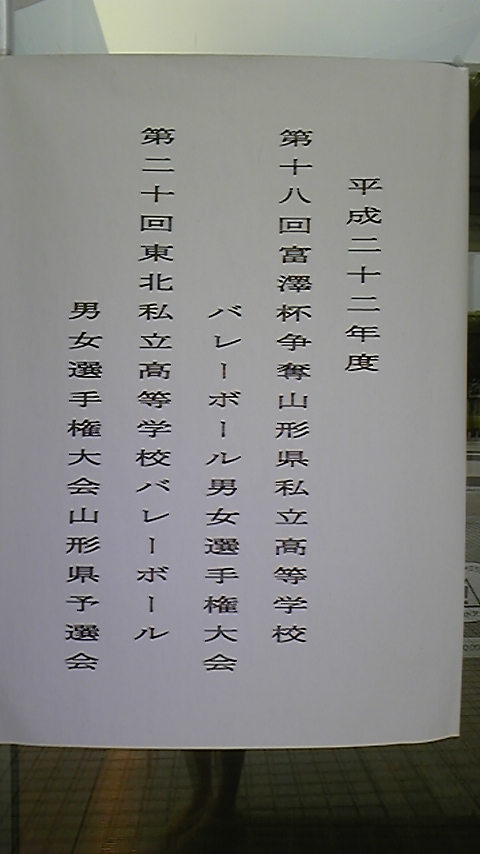 平成二十二年度
第十八回富澤杯争奪山形県私立高等学校
バレーボール男女選手権大会
第二十回東北私立高等学校バレーボール
男女選手権大会山形県予選会